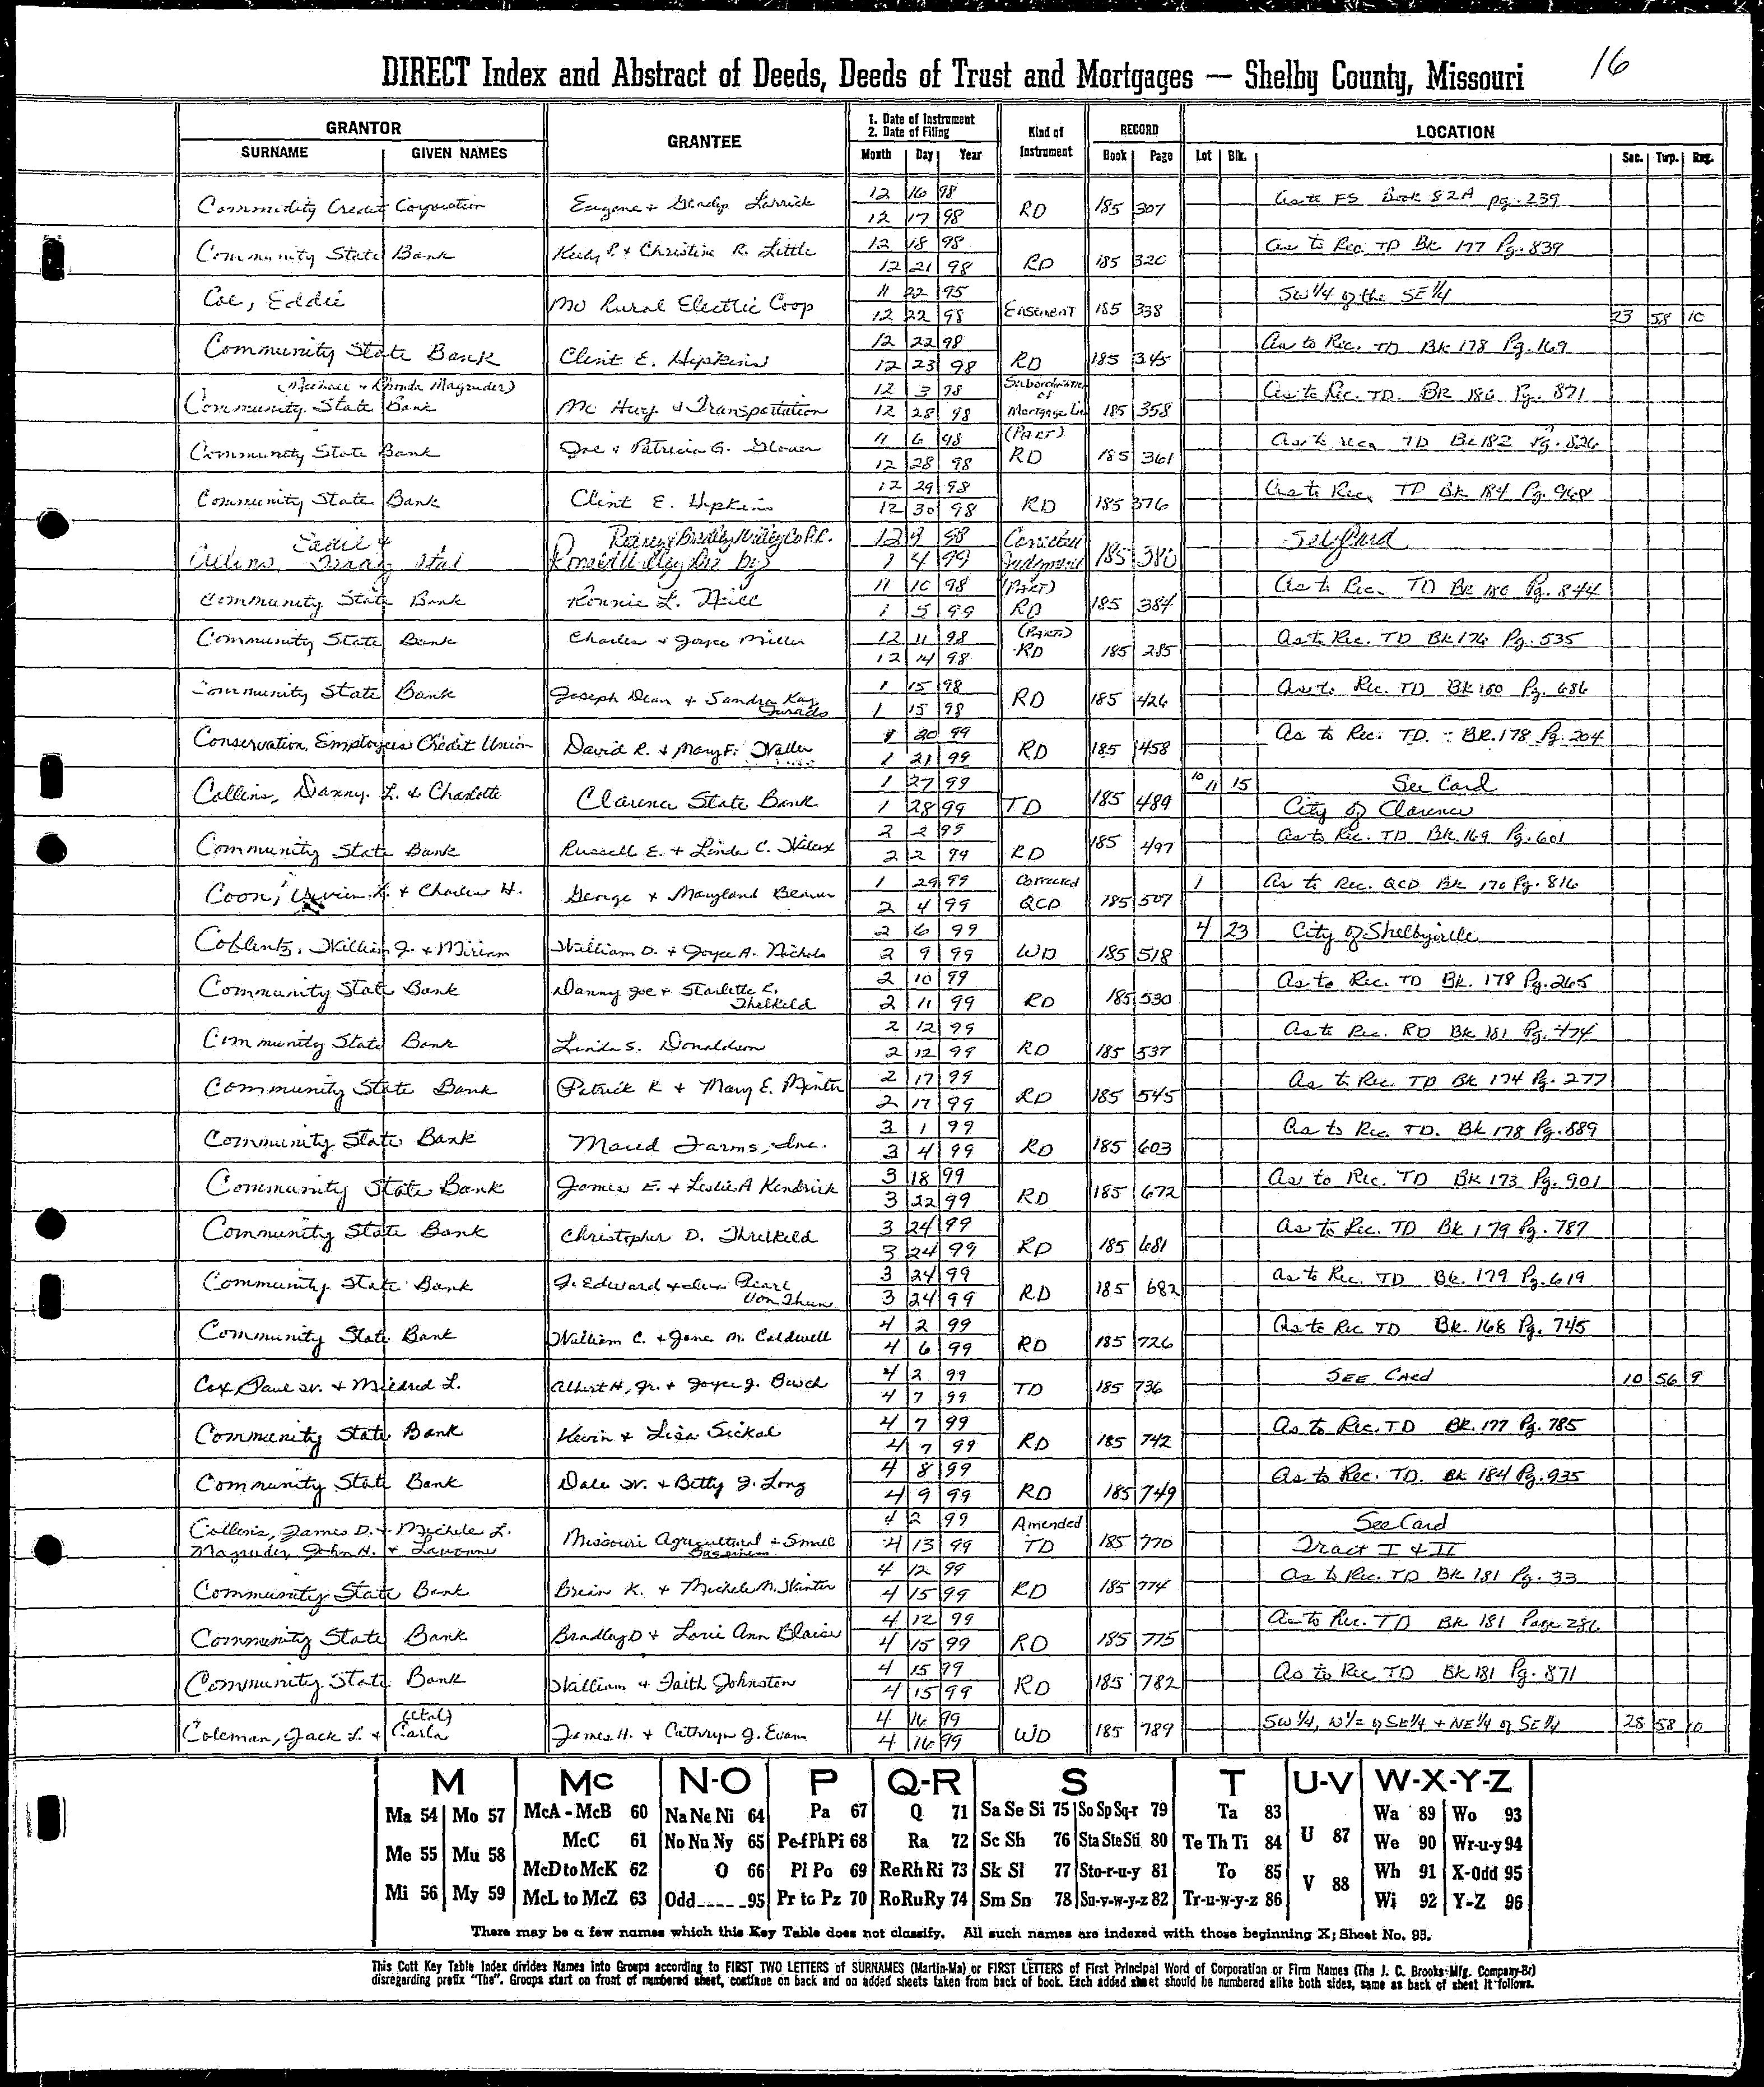 16
DIRECT Index and Abstract of Deeds, Deeds of Trust and Mortgages — Shelby County, Missouri
GRANTOR GRANTEE 1. Date of Instrument 2. Date of Filing Kind of Instrument RECORD LOCATION
SURNAME GIVEN NAMES Month Day Year Book Page Lot Blk. Sec. Twp. Rng.
Commodity Credit Corporation Eugene + Gladys Larrick 12 16 98 RD 185 307 As to FS Book 82A pg. 239
12 17 98
Community State Bank P. + Christine R. Little 12 18 98 RD 185 320 As to Rec. TD Bk 177 Pg. 839
12 21 98
Coe, Eddie Mo Rural Electric Coop 11 22 95 Easement 185 338 SW 1/4 of the SE 1/4 23 58 10
12 22 98
Community State Bank Clint E. Hopkins 12 22 98 RD 185 345 As to Rec. TD Bk 178 Pg. 169
12 23 98
(Michael + Rhonda Magruder) 12 3 98 Subordination of
Community State Bank Mo Hwy + Transportation 12 28 98 Mortgage Lien 185 358 As to Rec. TD. Bk 186 Pg. 871
Community State Bank Joe + Patricia G. Glover 11 6 98 (PART) RD 185 361 As to Rec TD Bk 182 Pg. 826
12 28 98
Community State Bank Clint E. Hopkins 12 29 98 RD 185 376 As to Rec. TD Bk 184 Pg. 968
12 30 98
Sadie + 12 9 98 Corrected
1 4 99 Judgment 185 380 See Card
Community State Bank Ronnie L. 11 10 98 (PART) RD 185 384 As to Rec. TD Bk 180 Pg. 844
1 5 99
Community State Bank Charles + Joyce Miller 12 11 98 (PART) RD 185 285 As to Rec. TD Bk 176 Pg. 535
12 14 98
Community State Bank Joseph Dean + Sandra Kay 1 15 98 RD 185 426 As to Rec. TD Bk 180 Pg. 686
1 15 98
Conservation Employees Credit Union David R. + Mary F. Waller 1 20 99 RD 185 458 As to Rec. TD. Bk. 178 Pg. 204
1 21 99
Collins, Danny L. + Charlotte Clarence State Bank 1 27 99 TD 185 489 10 11 15 See Card
1 28 99 City of Clarence
Community State Bank Russell E. + Linda C. Wilcox 2 2 99 RD 185 497 As to Rec. TD Bk. 169 Pg. 601
2 2 99
Coon, + Charles H. George + Maryland Beaver 1 29 99 Corrected QCD 185 507 1 As to Rec. QCD Bk 170 Pg. 816
2 4 99
Coblentz, William J. + Miriam William D. + Joyce A. Nichols 2 6 99 WD 185 518 4 23 City of Shelbyville
2 9 99
Community State Bank Danny Joe + Starlette R. Thelkeld 2 10 99 RD 185 530 As to Rec. TD Bk. 178 Pg. 265
2 11 99
Community State Bank Linda S. Donaldson 2 12 99 RD 185 537 As to Rec. RD Bk 181 Pg. 474
2 12 99
Community State Bank Patrick R + Mary E. Minter 2 17 99 RD 185 545 As to Rec. TD Bk 174 Pg. 277
2 17 99
Community State Bank Maud Farms, Inc. 3 1 99 RD 185 603 As to Rec. TD. Bk 178 Pg. 889
3 4 99
Community State Bank James E. + Leslie A Kendrick 3 18 99 RD 185 672 As to Rec. TD Bk 173 Pg. 901
3 22 99
Community State Bank Christopher D. Threlkeld 3 24 99 RD 185 681 As to Rec. TD Bk 179 Pg. 787
3 24 99
Community State Bank J. Edward + Iva Pearl Von Thun 3 24 99 RD 185 682 As to Rec. TD Bk. 179 Pg. 619
3 24 99
Community State Bank William C. + Jane M. Caldwell 4 2 99 RD 185 726 As to Rec TD Bk. 168 Pg. 745
4 6 99
Cox, Paul W. + Mildred L. Albert H, Jr. + Joyce J. Busch 4 2 99 TD 185 736 SEE CARD 10 56 9
4 7 99
Community State Bank Kevin + Lisa Sickal 4 7 99 RD 185 742 As to Rec. TD Bk. 177 Pg. 785
4 7 99
Community State Bank Dale W. + Betty J. Long 4 8 99 RD 185 749 As to Rec. TD. Bk 184 Pg. 935
4 9 99
Collins, James D. + Michele L. Missouri Agricultural + Small Business 4 2 99 Amended TD 185 770 See Card
Magruder, John H. + Lavonne 4 13 99 Tract I + II
Community State Bank Brian K. + Michele M. Winter 4 12 99 RD 185 774 As to Rec. TD Bk 181 Pg. 33
4 15 99
Community State Bank Bradley D + Lorie Ann Blaise 4 12 99 RD 185 775 As to Rec. TD Bk 181 Page 286
4 15 99
Community State Bank William + Faith Johnston 4 15 99 RD 185 782 As to Rec TD Bk 181 Pg. 871
4 15 99
Coleman, Jack L. + Carla (etal) James H. + Cathryn J. Evans 4 16 99 WD 185 789 SW 1/4, W 1/2 of SE 1/4 + NE 1/4 of SE 1/4 28 58 10
4 16 99
M Mc N-O P Q-R S T U-V W-X-Y-Z
Ma 54 Mo 57 McA - McB 60 Na Ne Ni 64 Pa 67 Q 71 Sa Se Si 75 So Sp Sq-r 79 Ta 83 Wa 89 Wo 93
Me 55 Mu 58 McC 61 No Nu Ny 65 Pe-f Ph Pi 68 Ra 72 Sc Sh 76 Sta Ste Sti 80 Te Th Ti 84 U 87 We 90 Wr-u-y 94
McD to McK 62 O 66 Pl Po 69 Re Rh Ri 73 Sk Sl 77 Sto-r-u-y 81 To 85 V 88 Wh 91 X-Odd 95
Mi 56 My 59 McL to McZ 63 Odd 95 Pr to Pz 70 Ro Ru Ry 74 Sm Sn 78 Su-v-w-y-z 82 Tr-u-w-y-z 86 Wi 92 Y-Z 96
There may be a few names which this Key Table does not classify. All such names are indexed with those beginning X; Sheet No. 95.
This Cott Key Table Index divides Names into Groups according to FIRST TWO LETTERS of SURNAMES (Martin-Ma) or FIRST LETTERS of First Principal Word of Corporation or Firm Names (The J. C. Brooks Mfg. Company-Br)
disregarding prefix "The". Groups start on front of numbered sheet, continue on back and on added sheets taken from back of book. Each added sheet should be numbered alike both sides, same as back of sheet it follows.